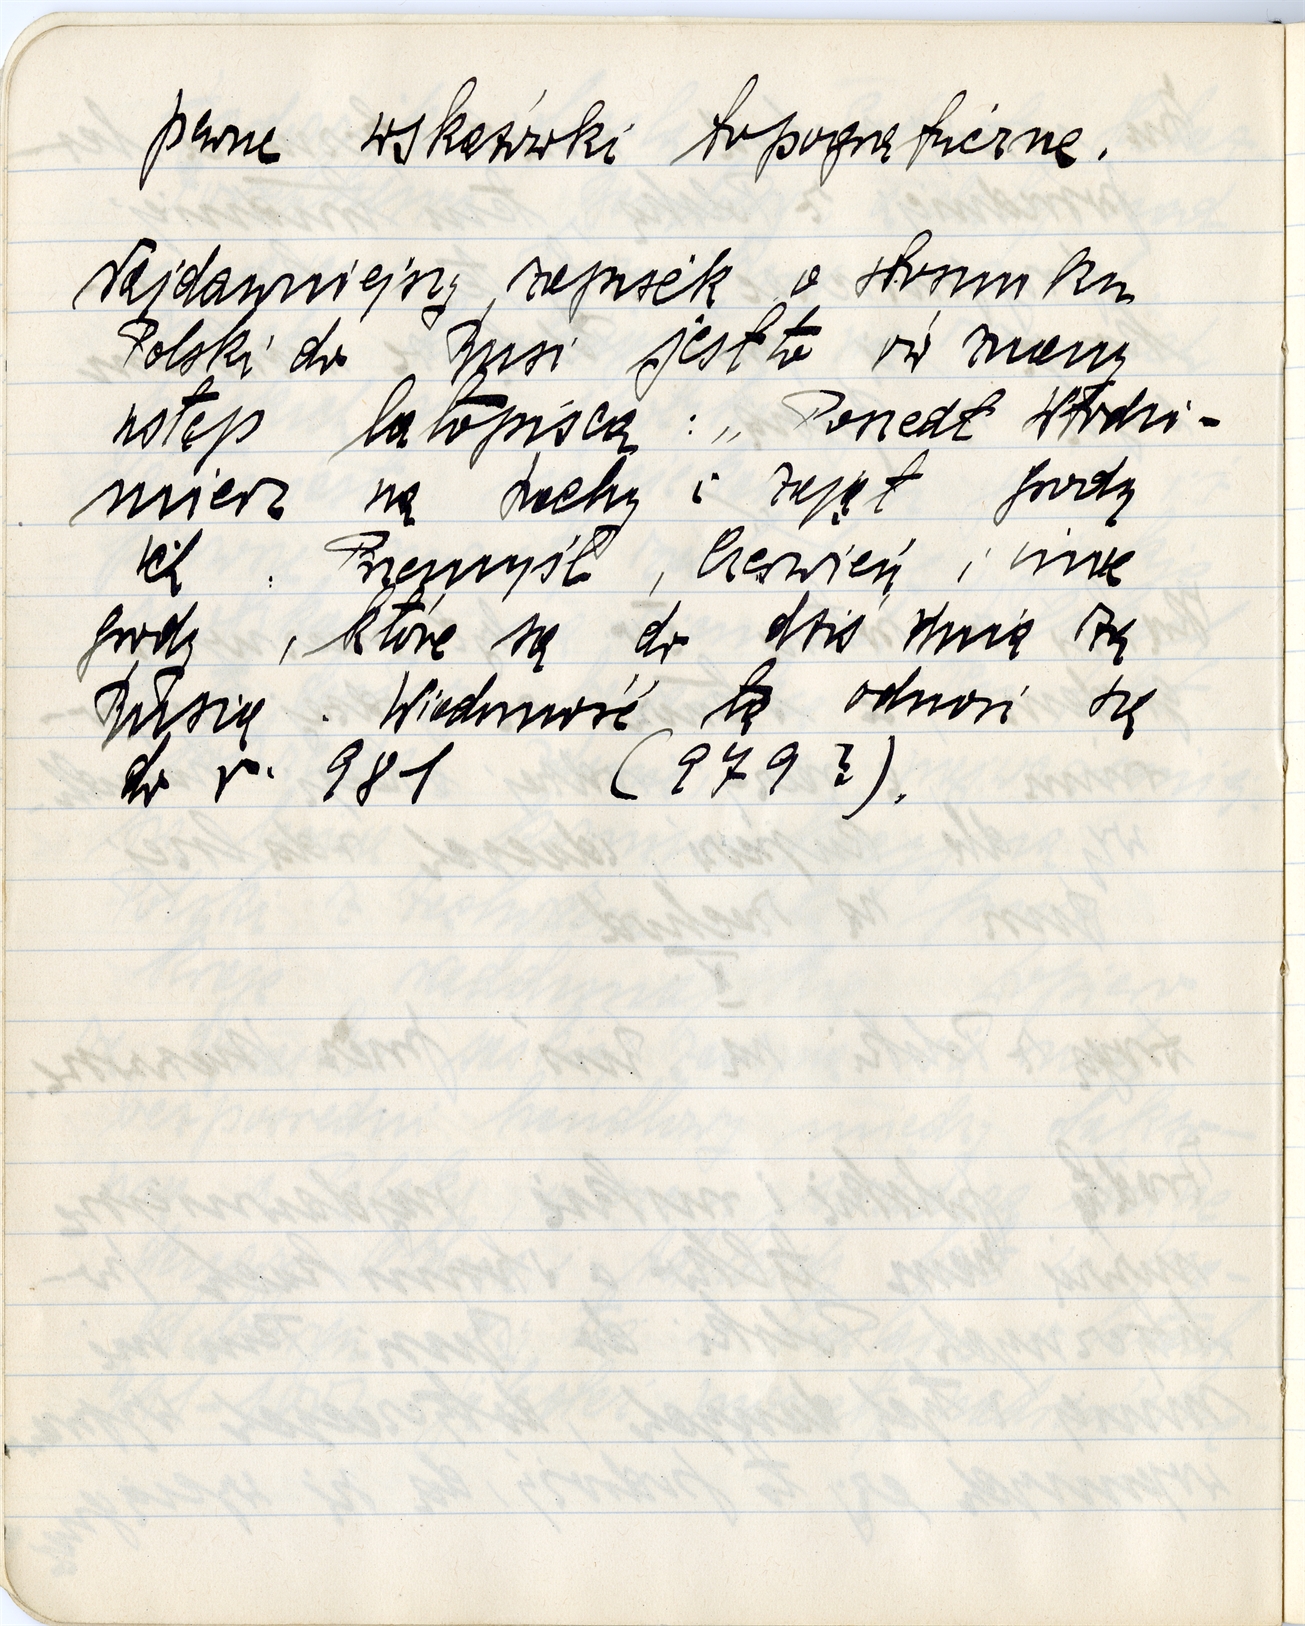 pewne wskazówki topograficzne.
Najdawniejszy zapisek o stosunku
Polski do Rusi jest to ów znany
ustęp latopisca : „ Poszedł Włodzi-
mierz na Lachy i zajął grody
ich : Przemyśl, Czerwień i inne
grody, które są do dziś dnia za
Rusią. Wiadomość ta odnosi się
do r. 981 (979?).